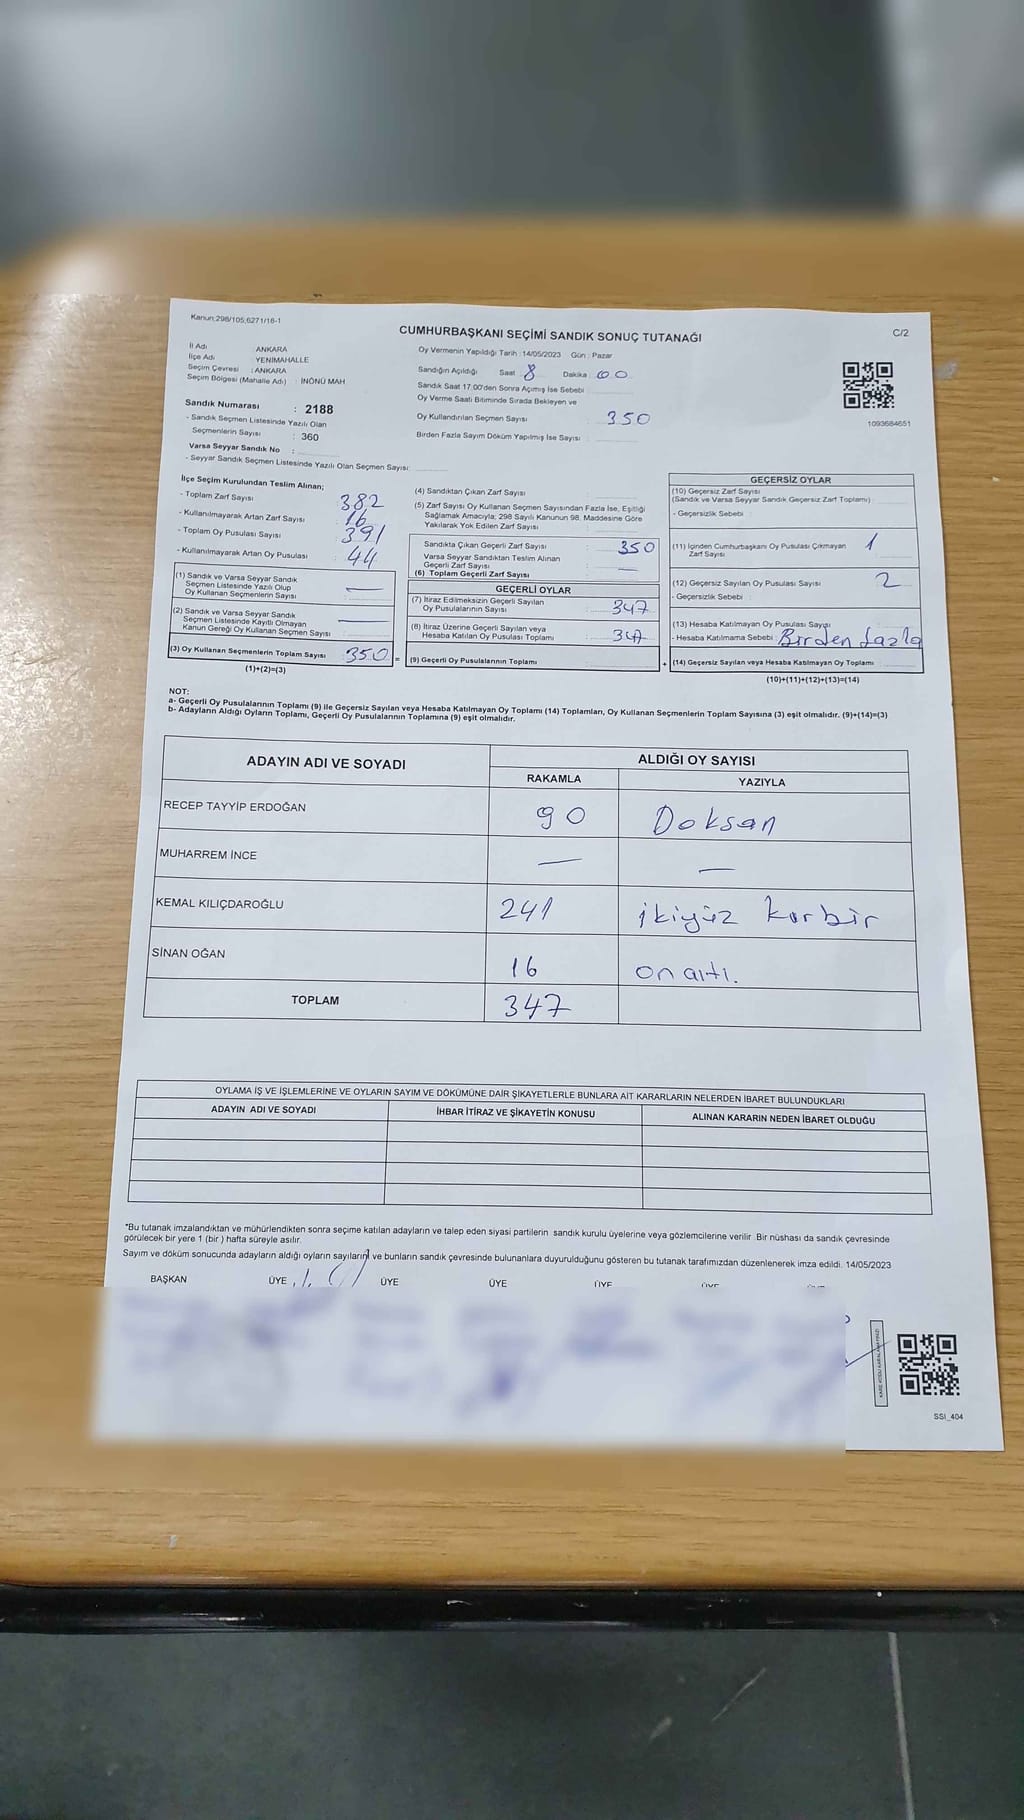 Kanun:298/105,6271/16-1
C/2
CUMHURBAŞKANI SEÇİMİ SANDIK SONUÇ TUTANAĞI
İl Adı : ANKARA
İlçe Adı : YENİMAHALLE
Seçim Çevresi : ANKARA
Seçim Bölgesi (Mahalle Adı) : İNÖNÜ MAH
Sandık Numarası : 2188
- Sandık Seçmen Listesinde Yazılı Olan
Seçmenlerin Sayısı : 360
Varsa Seyyar Sandık No :
- Seyyar Sandık Seçmen Listesinde Yazılı Olan Seçmen Sayısı:
Oy Vermenin Yapıldığı Tarih :14/05/2023 Gün : Pazar
Sandığın Açıldığı Saat 8 Dakika 00
Sandık Saat 17:00'den Sonra Açımış İse Sebebi
Oy Verme Saati Bitiminde Sırada Bekleyen ve
Oy Kullandırılan Seçmen Sayısı : 350
Birden Fazla Sayım Döküm Yapılmış İse Sayısı :
1093684651
İlçe Seçim Kurulundan Teslim Alınan;
- Toplam Zarf Sayısı : 382
- Kullanılmayarak Artan Zarf Sayısı : 16
- Toplam Oy Pusulası Sayısı : 391
- Kullanılmayarak Artan Oy Pusulası : 44
(1) Sandık ve Varsa Seyyar Sandık
Seçmen Listesinde Yazılı Olup
Oy Kullanan Seçmenlerin Sayısı : —
(2) Sandık ve Varsa Seyyar Sandık
Seçmen Listesinde Kayıtlı Olmayan
Kanun Gereği Oy Kullanan Seçmen Sayısı : —
(3) Oy Kullanan Seçmenlerin Toplam Sayısı : 350 =
(1)+(2)=(3)
(4) Sandıktan Çıkan Zarf Sayısı :
(5) Zarf Sayısı Oy Kullanan Seçmen Sayısından Fazla İse, Eşitliği
Sağlamak Amacıyla; 298 Sayılı Kanunun 98. Maddesine Göre
Yakılarak Yok Edilen Zarf Sayısı :
Sandıkta Çıkan Geçerli Zarf Sayısı : 350
Varsa Seyyar Sandıktan Teslim Alınan
Geçerli Zarf Sayısı : —
(6) Toplam Geçerli Zarf Sayısı :
GEÇERLİ OYLAR
(7) İtiraz Edilmeksizin Geçerli Sayılan
Oy Pusulalarının Sayısı : 347
(8) İtiraz Üzerine Geçerli Sayılan veya
Hesaba Katılan Oy Pusulası Toplamı : 347
(9) Geçerli Oy Pusulalarının Toplamı : +
GEÇERSİZ OYLAR
(10) Geçersiz Zarf Sayısı
(Sandık ve Varsa Seyyar Sandık Geçersiz Zarf Toplamı) :
- Geçersizlik Sebebi :
(11) İçinden Cumhurbaşkanı Oy Pusulası Çıkmayan
Zarf Sayısı : 1
(12) Geçersiz Sayılan Oy Pusulası Sayısı : 2
- Geçersizlik Sebebi :
(13) Hesaba Katılmayan Oy Pusulası Sayısı
- Hesaba Katılmama Sebebi : Birden fazla
(14) Geçersiz Sayılan veya Hesaba Katılmayan Oy Toplamı :
(10)+(11)+(12)+(13)=(14)
NOT:
a- Geçerli Oy Pusulalarının Toplamı (9) ile Geçersiz Sayılan veya Hesaba Katılmayan Oy Toplamı (14) Toplamları, Oy Kullanan Seçmenlerin Toplam Sayısına (3) eşit olmalıdır. (9)+(14)=(3)
b- Adayların Aldığı Oyların Toplamı, Geçerli Oy Pusulalarının Toplamına (9) eşit olmalıdır.
ADAYIN ADI VE SOYADI ALDIĞI OY SAYISI
RAKAMLA YAZIYLA
RECEP TAYYİP ERDOĞAN 90 Doksan
MUHARREM İNCE — —
KEMAL KILIÇDAROĞLU 241 ikiyüz kırbir
SİNAN OĞAN 16 onaltı.
TOPLAM 347
OYLAMA İŞ VE İŞLEMLERİNE VE OYLARIN SAYIM VE DÖKÜMÜNE DAİR ŞİKAYETLERLE BUNLARA AİT KARARLARIN NELERDEN İBARET BULUNDUKLARI
ADAYIN ADI VE SOYADI İHBAR İTİRAZ VE ŞİKAYETİN KONUSU ALINAN KARARIN NEDEN İBARET OLDUĞU
*Bu tutanak imzalandıktan ve mühürlendikten sonra seçime katılan adayların ve talep eden siyasi partilerin sandık kurulu üyelerine veya gözlemcilerine verilir .Bir nüshası da sandık çevresinde
görülecek bir yere 1 (bir ) hafta süreyle asılır.
Sayım ve döküm sonucunda adayların aldığı oyların sayılarını ve bunların sandık çevresinde bulunanlara duyurulduğunu gösteren bu tutanak tarafımızdan düzenlenerek imza edildi. 14/05/2023
BAŞKAN ÜYE ÜYE ÜYE ÜYE ÜYE ÜYE
SSI_404